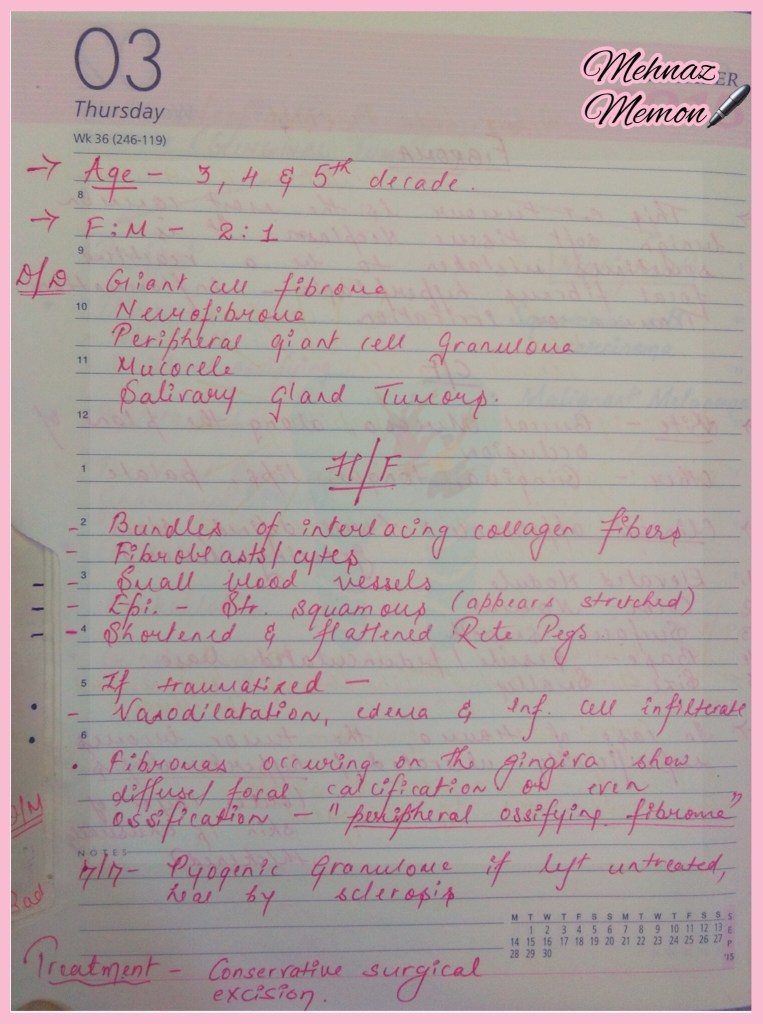 03
Thursday
Wk 36 (246-119)
Mehnaz
Memon
ER
→ Age - 3, 4 & 5th decade.
8
→ F:M - 2:1
9
D/D Giant cell fibroma
10 Neurofibroma
Peripheral giant cell Granuloma
11 Mucocele
Salivary gland Tumors.
12
H/F
1
2 - Bundles of interlacing collagen fibers
- Fibroblasts/cytes
3 - Small blood vessels
- Epi. - Str. squamous (appears stretched)
4 - Shortened & flattened Rete Pegs
5 If traumatized -
- Vasodilatation, edema & Inf. cell infilterate
6
• Fibromas occuring on the gingiva show
diffuse/ focal calcification or even
ossification - "peripheral ossifying fibroma"
NOTES
Pyogenic Granuloma if left untreated,
heal by sclerosis
M T W T F S S M T W T F S S
1 2 3 4 5 6 7 8 9 10 11 12 13
14 15 16 17 18 19 20 21 22 23 24 25 26 27
28 29 30
SEP '15
Treatment - Conservative surgical
excision.